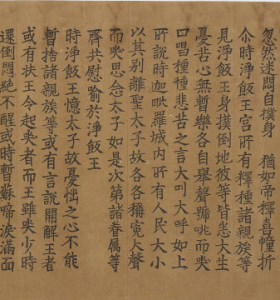 忽然迷悶自撲身　猶如帝釋喜幢折
尒時淨飯王宮所有釋種諸親族等
見淨飯王身撲倒地彼等皆悉大生
憂苦心無暫樂各自舉聲號咷而哭
口唱種種悲苦之言大叫大呼如上
所說時迦毗羅城內所有人民大小
以其別離聖太子故各各稱冤大聲
而哭思念太子如是次第諸眷属等
齊共慰喻於淨飯王
時淨飯王憶太子故憂惱之心不能
暫捨諸親族等或有言說開解王者
或有扶王令起坐者而王雖坐少時
還倒悶絕不醒或時暫蘇啼淚滿面